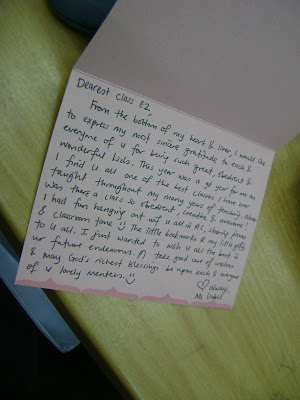 Dearest Class E2,
From the bottom of my heart & liver, I would like
to express my most sincere gratitude to each &
everyone of u for being such great, obedient &
wonderful kids. This year was a gd year for me as
I find u all one of the best classes I have ever
taught throughout my many years of teaching. Never
was there a class so obedient, creative & matured!
I had fun hanging out wif u all in
& classroom time :) The little bookmarks r my little gifts
to u all. I just wanted to wish u all the best in
ur future endeavours. Pl take good care of urselves
& may God's richest blessings be upon each & everyone
of u lovely mentees. :)
always,
Ms